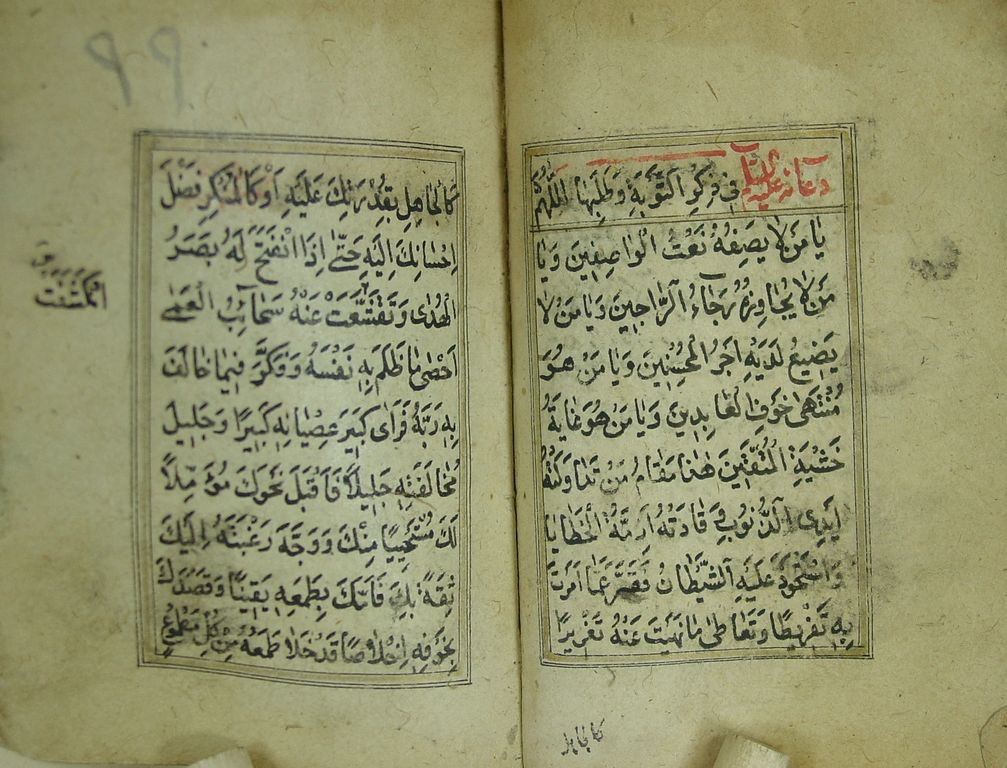 دعائه عليه السلام في ذكر التوبة وطلبها اللهم
يَا مَنْ لَا يَصِفُهُ نَعْتُ الْوَاصِفِينَ وَيَا
مَنْ لَا يُجَاوِزُهُ رَجَاءُ الرَّاجِينَ وَيَا مَنْ لَا
يَضِيعُ لَدَيْهِ أَجْرُ الْمُحْسِنِينَ وَيَا مَنْ هُوَ
مُنْتَهَى خَوْفِ الْعَابِدِينَ وَيَا مَنْ هُوَ غَايَةُ
خَشْيَةِ الْمُتَّقِينَ هٰذَا مَقَامُ مَنْ تَدَاوَلَتْهُ
أَيْدِي الذُّنُوبِ وَقَادَتْهُ أَزِمَّةُ الْخَطَايَا
وَاسْتَحْوَذَ عَلَيْهِ الشَّيْطَانُ فَقَصَّرَ عَمَّا أَمَرْتَ
بِهِ تَفْرِيطًا وَتَعَاطَى مَا نَهَيْتَ عَنْهُ تَغْرِيرًا
كالجاهل
كَالْجَاهِلِ بِقُدْرَتِكَ عَلَيْهِ أَوْ كَالْمُنْكِرِ فَضْلَ
إِحْسَانِكَ إِلَيْهِ حَتَّى إِذَا انْفَتَحَ لَهُ بَصَرُ
الْهُدَى وَتَقَشَّعَتْ عَنْهُ سَحَائِبُ الْعَمَى
أَحْصَى مَا ظَلَمَ بِهِ نَفْسَهُ وَفَكَّرَ فِيمَا خَالَفَ
بِهِ رَبَّهُ فَرَأَى كَبِيرَ عِصْيَانِهِ كَبِيرًا وَجَلِيلَ
مُخَالَفَتِهِ جَلِيلًا فَأَقْبَلَ نَحْوَكَ مُؤَمِّلًا
لَكَ مُسْتَحْيِيًا مِنْكَ وَوَجَّهَ رَغْبَتَهُ إِلَيْكَ
ثِقَةً بِكَ فَأَمَّكَ بِطَمَعِهِ يَقِينًا وَقَصَدَكَ
بِخَوْفِهِ إِخْلَاصًا قَدْ خَلَا طَمَعُهُ مِنْ كُلِّ مَطْمُوعٍ